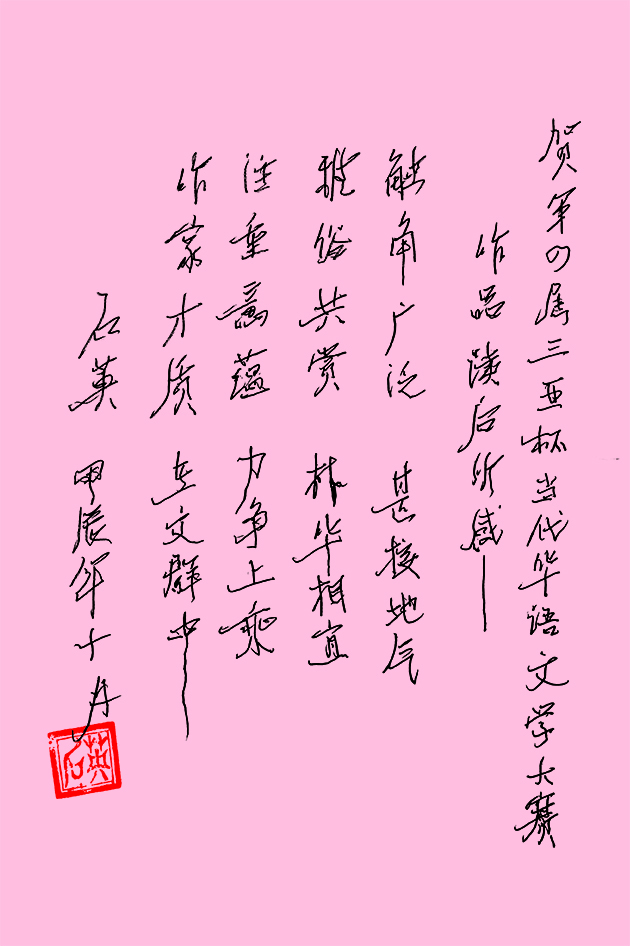 贺第四届三亚杯当代华语文学大赛
作品读后所感——
触角广泛 甚接地气
雅俗共赏 朴华相宜
注重意蕴 力争上乘
作家才质 在文群中
石英 甲辰年十月
石英